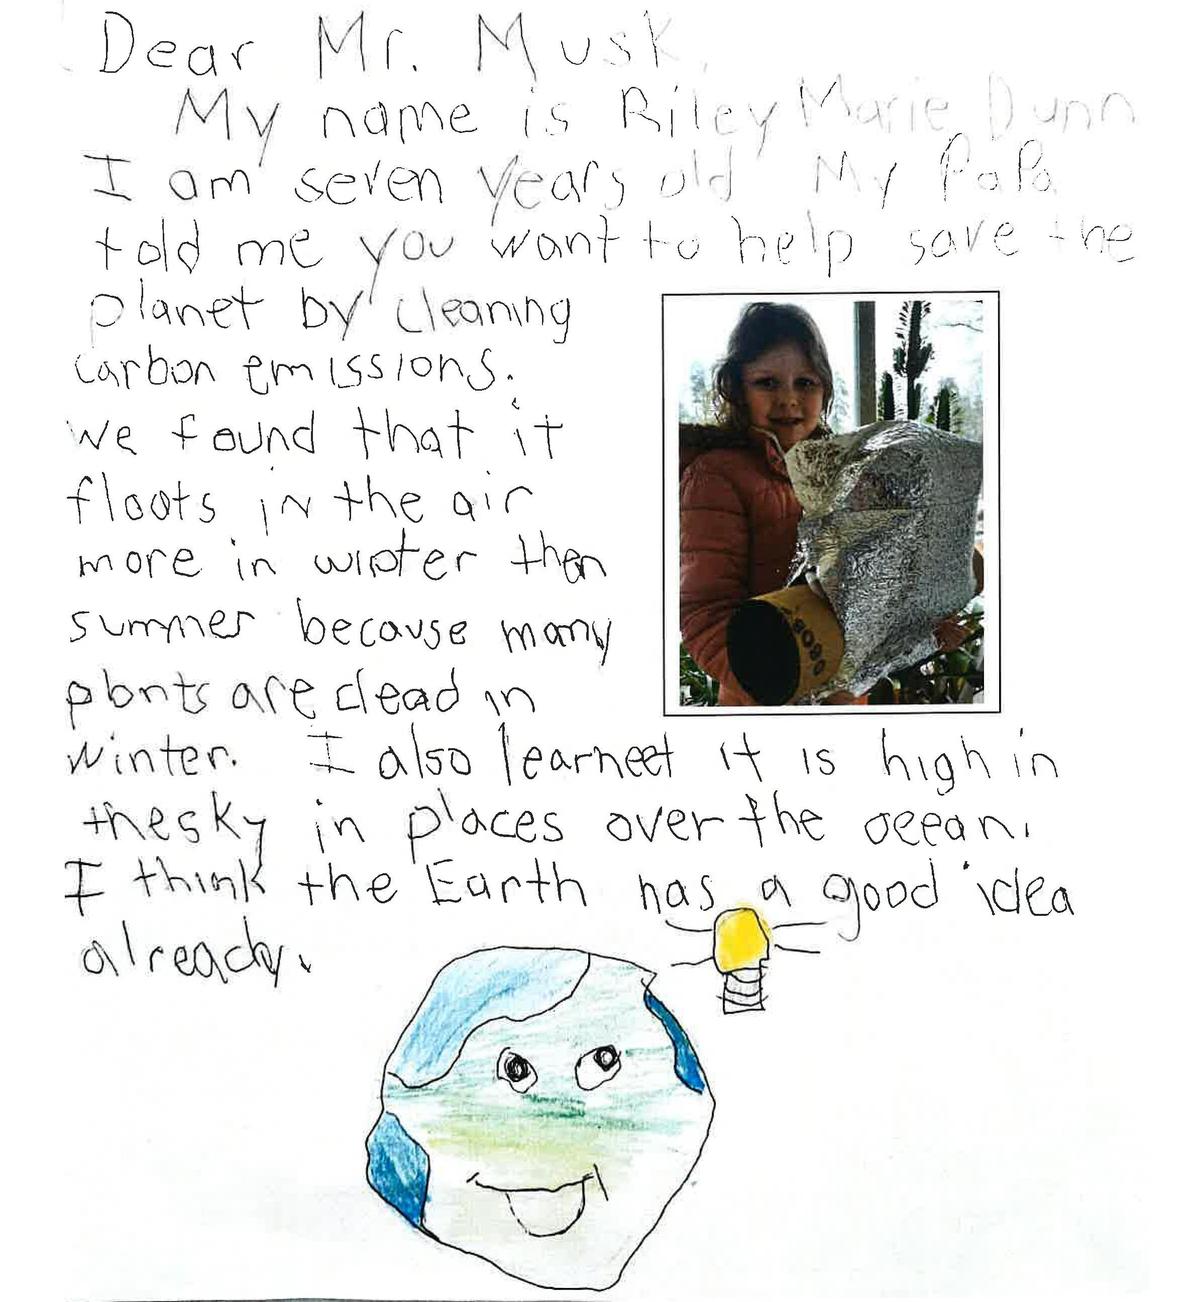 Dear Mr. Musk,
My name is Riley Marie Dunn
I am seven years old My Papa
told me you want to help save the
planet by cleaning
carbon emissions.
We found that it
floats in the air
more in winter then
summer because many
plants are dead in
winter. I also learned it is high in
the sky in places over the ocean.
I think the Earth has a good idea
already.